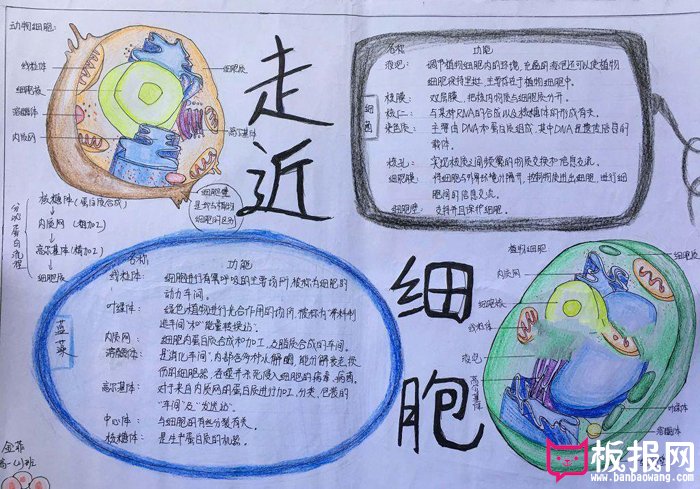 动物细胞:
线粒体
细胞核
核糖体
内质网
细胞液
高尔基体
走近
细胞
细胞壁
是动与植物
细胞的区别
分泌蛋白流程
核糖体(蛋白质合成)
内质网(粗加工)
高尔基体(精加工)
细胞膜
细菌
名称 功能
液泡: 调节植物细胞内的环境,充盈的液泡还可以使植物
细胞保持坚挺,主要存在于植物细胞中。
核膜: 双层膜,把核内物质与细胞质分开。
核仁: 与某种RNA的合成以及核糖体的形成有关。
染色质: 主要由DNA和蛋白质组成,其中DNA是遗传信息的
载体。
核孔: 实现核质之间频繁的物质交换和信息交流。
细胞膜: 将细胞与外界环境分隔开,控制物质进出细胞,进行细
胞间的信息交流。
细胞壁: 支持并且保护细胞。
蓝藻
名称 功能
线粒体: 细胞进行有氧呼吸的主要场所,被称为细胞的
动力车间。
叶绿体: 绿色植物进行光合作用的场所,被称为"养料制
造车间"和"能量转换站"。
内质网: 细胞内蛋白质合成和加工,及脂质合成的车间。
溶酶体: 是消化车间,内部含多种水解酶,能分解衰老、损
伤的细胞器,吞噬并杀死侵入细胞的病毒、病菌。
高尔基体: 对于来自内质网的蛋白质进行加工、分类、包装的
"车间"及"发送站"。
中心体: 与细胞的有丝分裂有关。
核糖体: 是生产蛋白质的机器。
植物细胞
内质网
细胞核
线粒体
液泡
高尔基体
细胞膜
叶绿体
溶酶体
金菲
高一(1)班
板报网
www.banbaowang.com